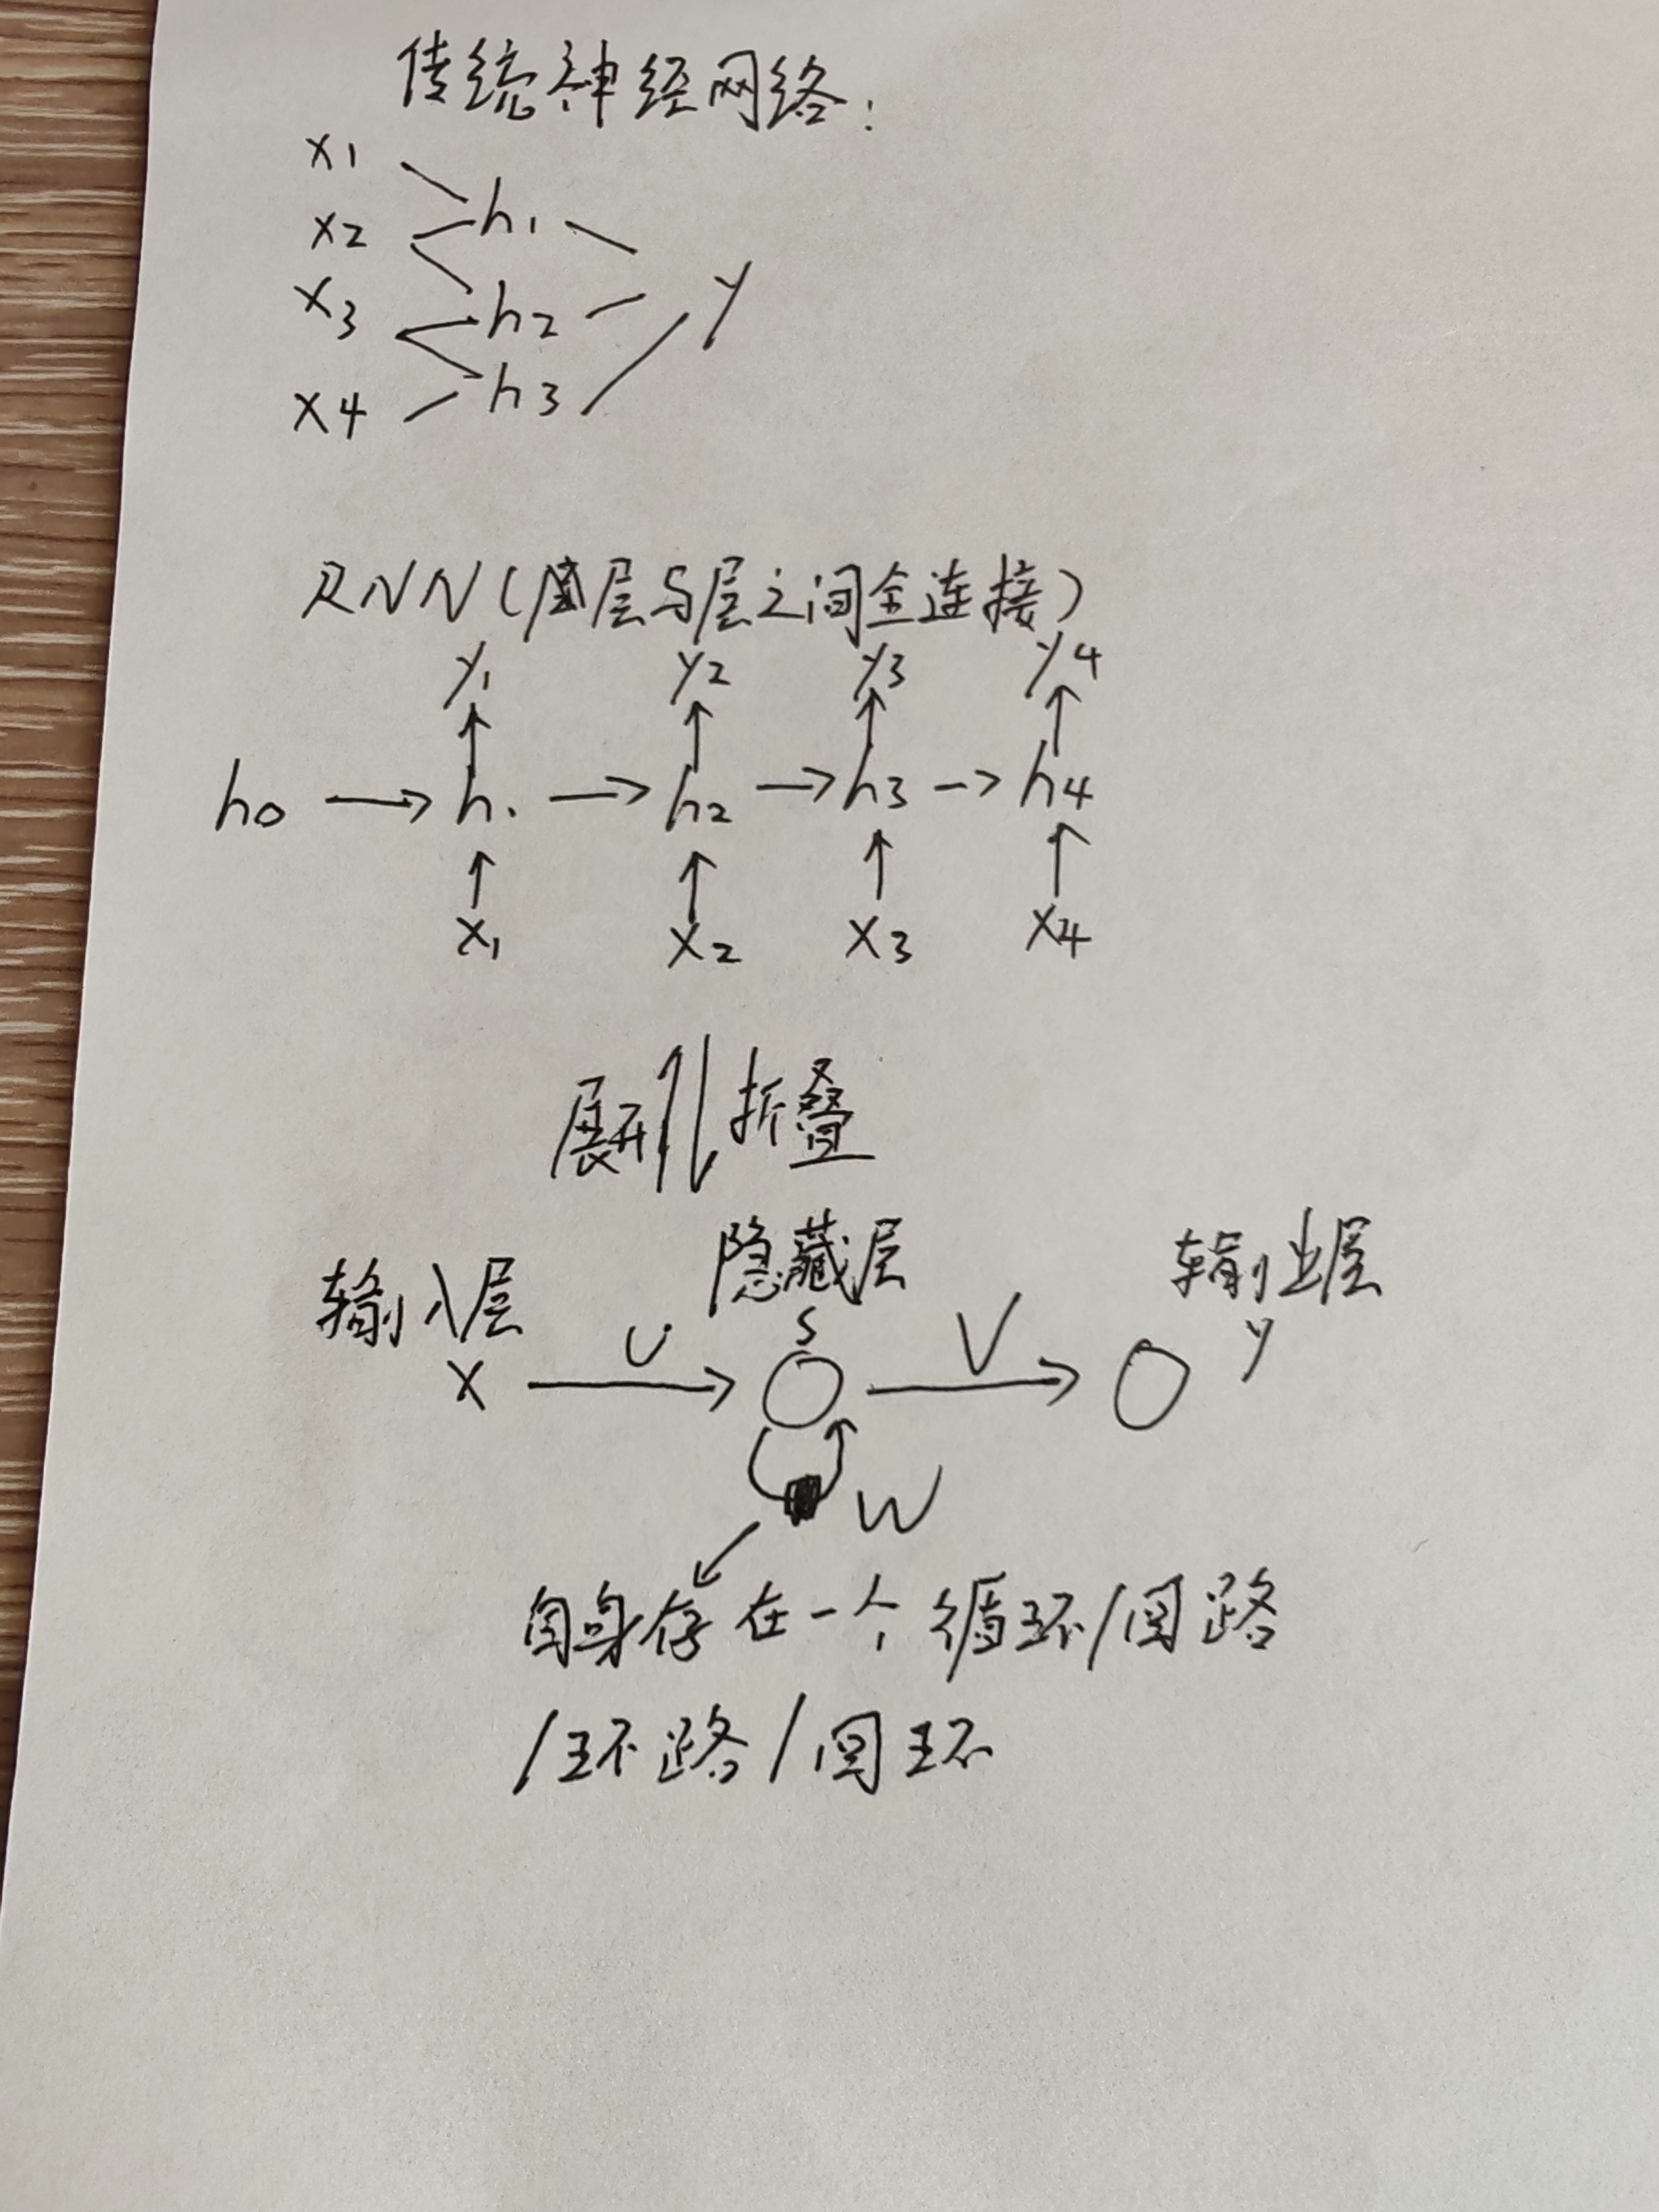 传统神经网络:
x1
x2 h1
x3 h2 y
x4 h3
RNN(层与层之间全连接)
y1 y2 y3 y4
h0 h1 h2 h3 h4
x1 x2 x3 x4
展开 折叠
输入层 隐藏层 输出层
x U s V y
W
自身存在一个循环/回路
/环路/回环